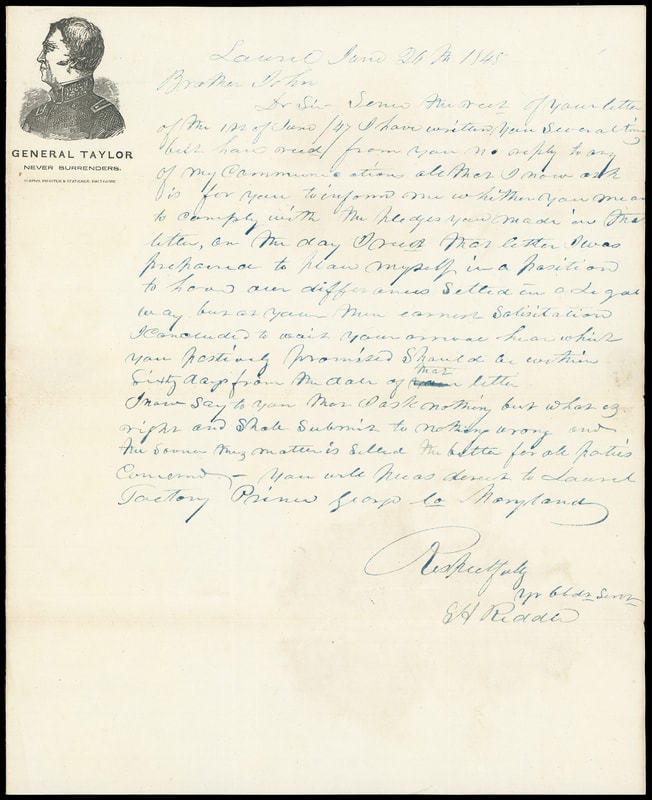 GENERAL TAYLOR
NEVER SURRENDERS.
Laurel June 26th 1848
Brother John
Dr Sir - Since the rect of your letter
of the 1st of June /47 I have written you several tim
but have recd from you no reply to any
of my Communications all that I now ask
is for you to inform me whether you mean
to comply with the pledges you made in that
letter, on the day I recd that letter I was
prepared to place myself in a position
to have our differences Settled in a Legal
way but at your then earnest Solisitation
I Concluded to wait your arrival hear which
you postively promised Should be within
Sixty days from the date of that letter
I now Say to you that I ask nothing but what is
right and Shall Submit to nothing wrong and
the Sooner this matter is Setled the better for all parties
Concernd - You will pleas derect to Laurel
Factory Prince George Co Maryland
Respectfully
Yr Obdt Servt
E H Redder